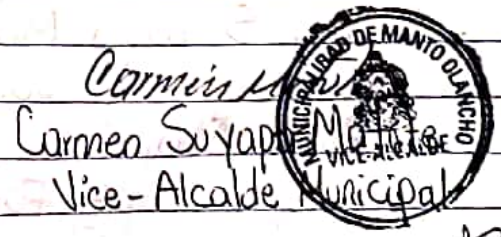 Carmen
Carmen Suyapa
Vice-Alcalde Municipal
MUNICIPALIDAD DE MANTO OLANCHO
VICE-ALCALDE